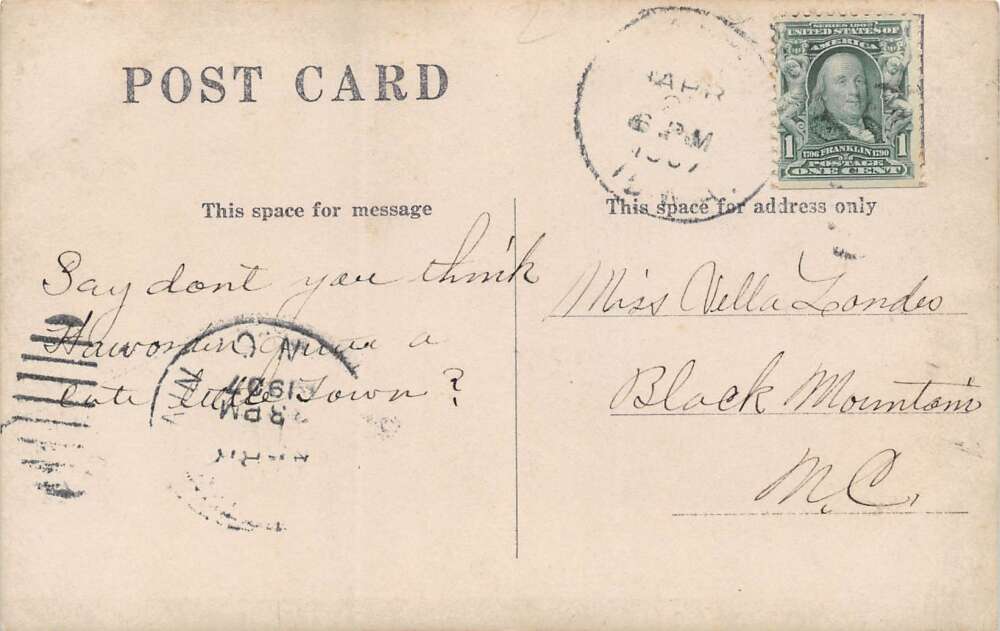 POST CARD
This space for message
Say dont you think
a
little Town?
This space for address only
Miss Vella Landes
Black Mountain
N.C.
APR
6 PM
1907
N C
1907
8 PM
SERIES 1902
UNITED STATES OF
AMERICA
1 1
1706 FRANKLIN 1790
POSTAGE
ONE CENT